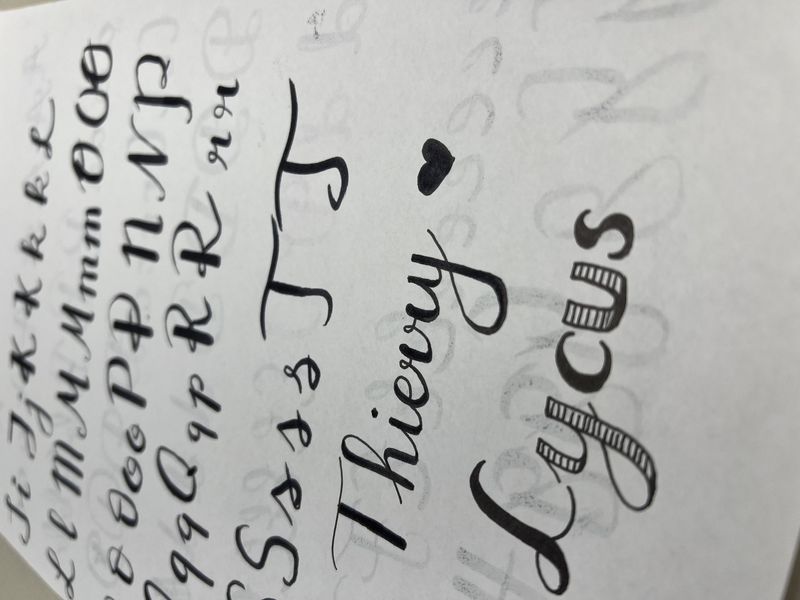 J i J j K K k k L
L l M M M m m O O O
O O o o P P N N P
Q q q Q q p R R r r
S S s s s T T
Thierry
Lycus